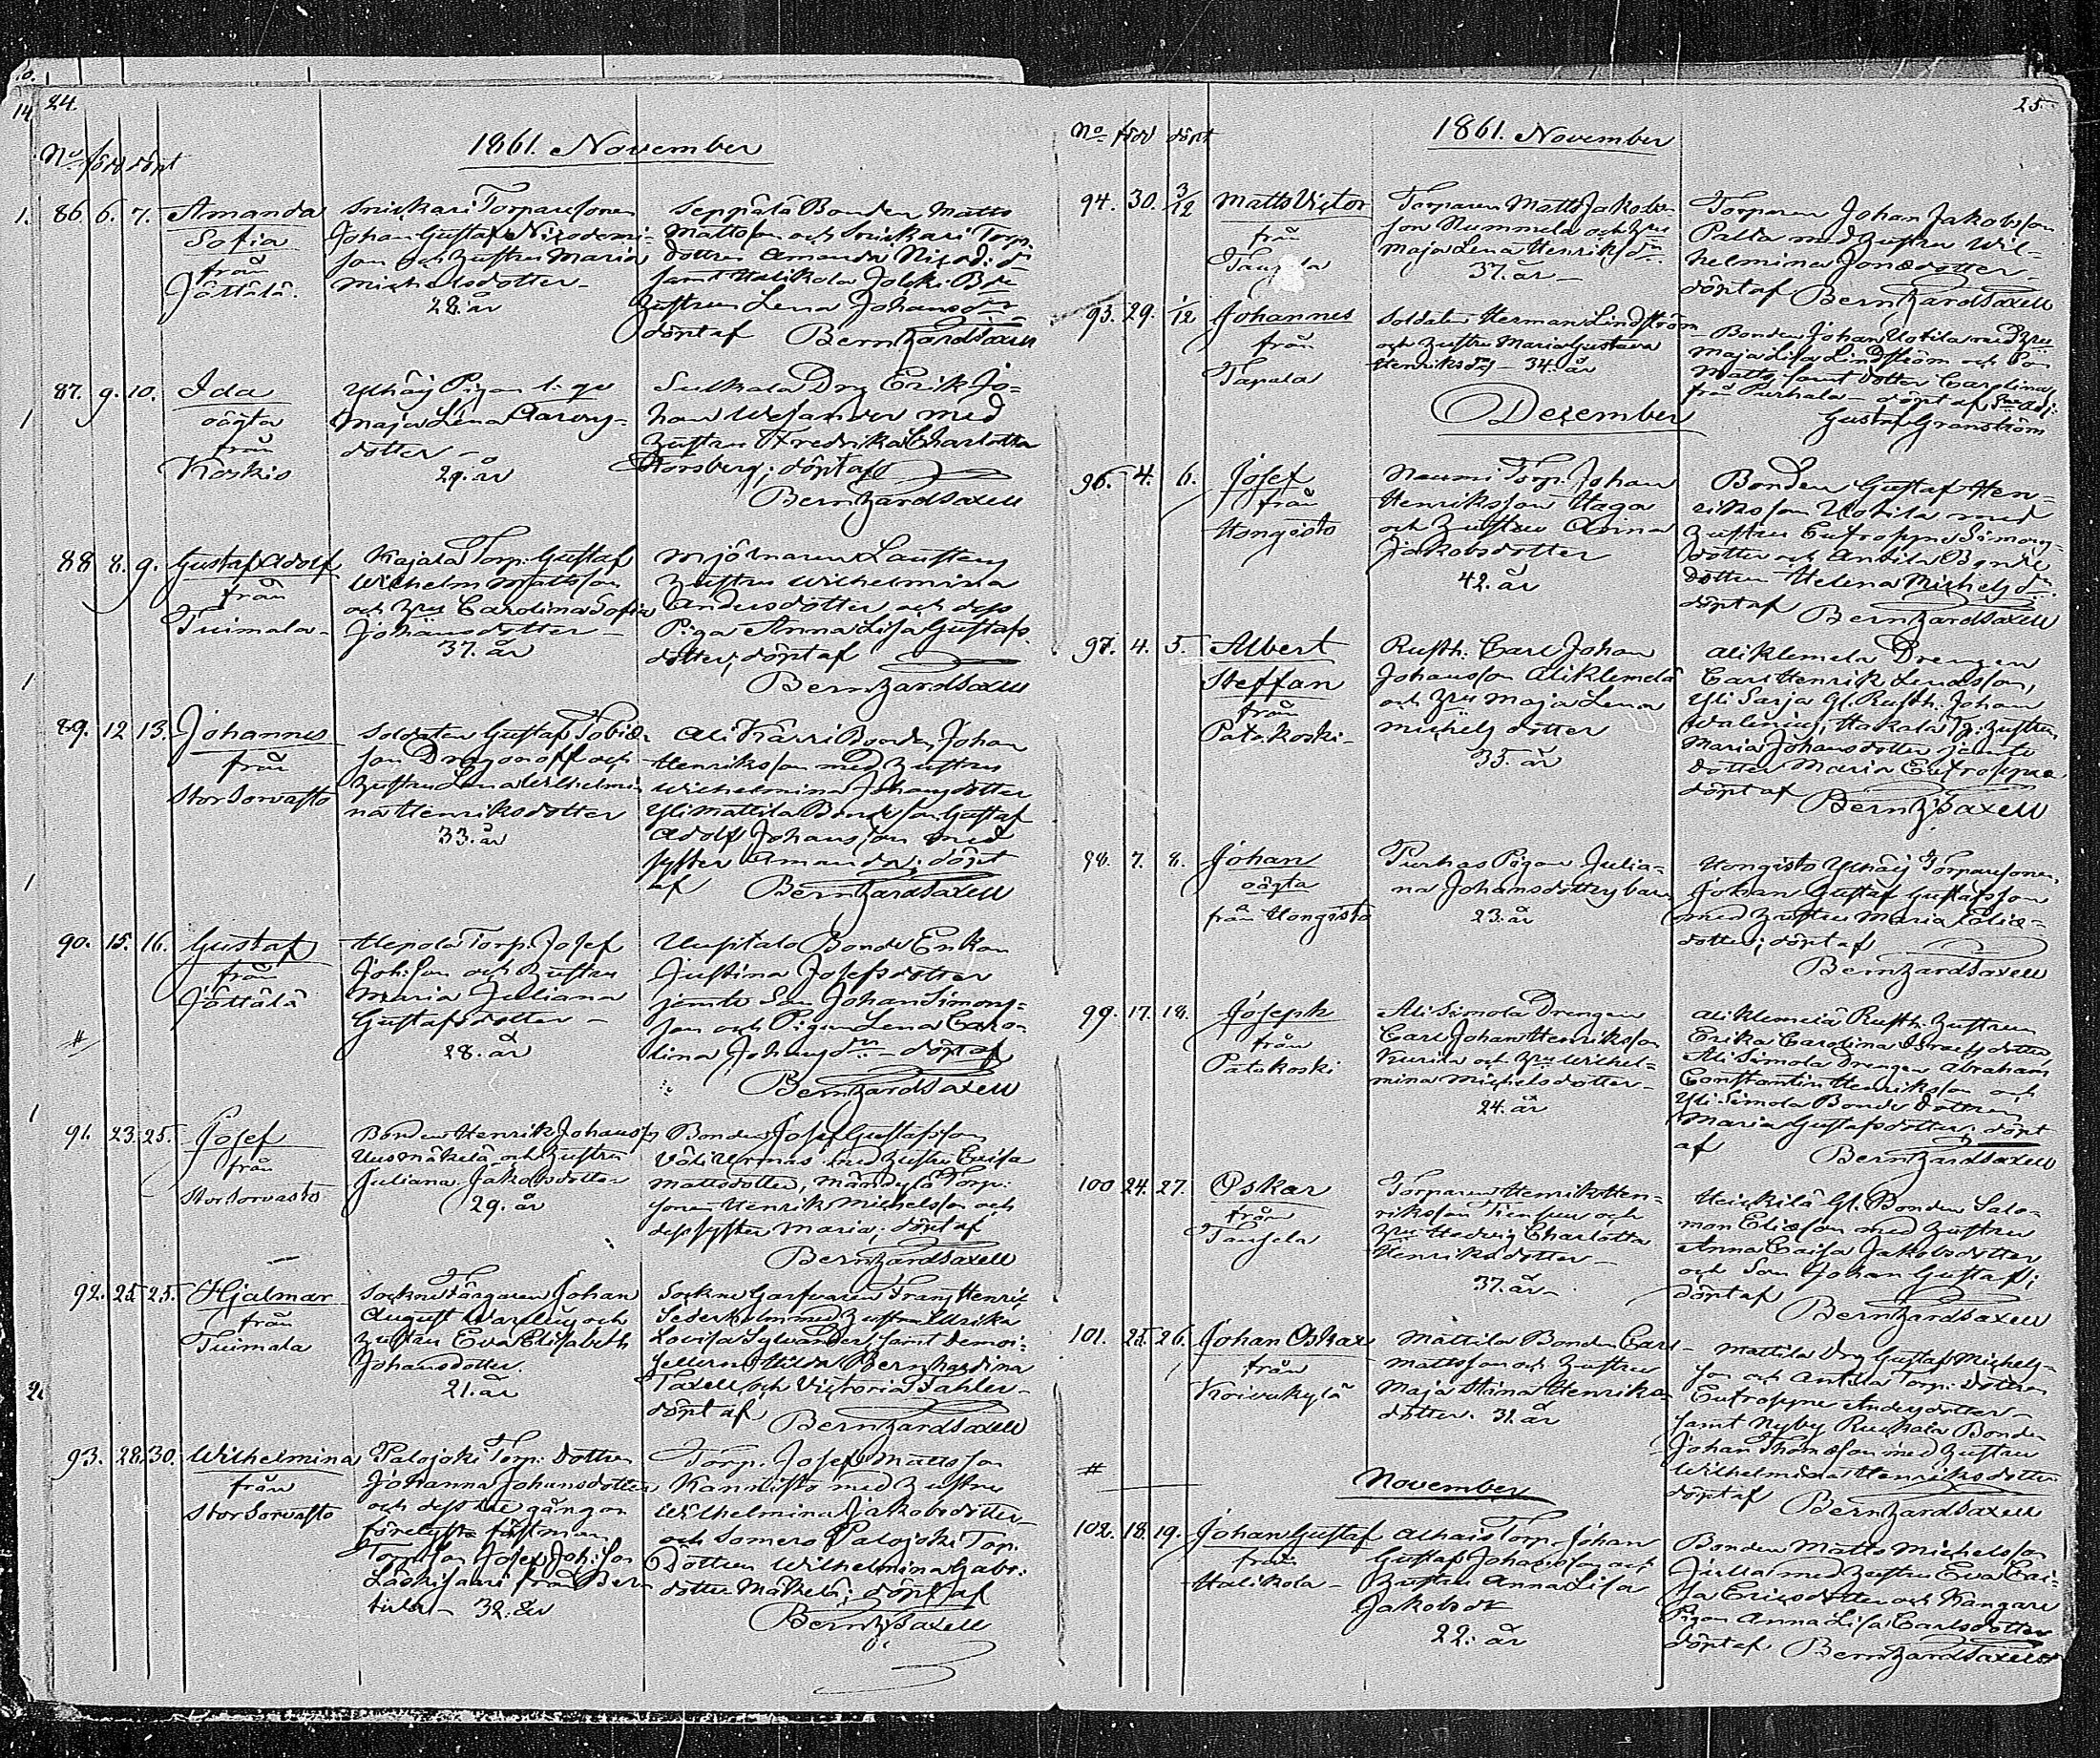 24.
1861. November
No född döpt
86. 6. 7. Amanda
Sofia
från
Jättälä.
Snickari Torparesonen
Johan Gustaf Nicodemi-
son och hustru Maria
Michelsdotter
28. år
Seppälä Bonden Matts
Mattsson och Snickari Torp.
dottren Amanda Nicod: dr
samt Halikola Jaski B de
hustrun Lena Johansdr
döpt af Berntz Zardtsaxell
87. 9. 10. Ida
oägta
från
Koskis
Ylhäis Pigan l. qv
Maja Lena Aarons-
dotter
29. år
Sulkala Drg Erik Jo-
han Wesander med
hustrun Fredrika Charlotta
Storsberg; döpt af
88 8. 9. Gustaf Adolf
från
Tuimala
Kajala Torp. Gustaf
Wilhelm Mattsson
och hru Carolina Sofia
Johansdotter
37. år
Mjölnaren Laustens
hustru Wilhelmina
Andersdotter och dess
Piga Anna Lisa Gustafs
dotter; döpt af
89. 12 13. Johannes
från
Stor Sorvasto
Soldaten Gustaf Tobiæ-
son Dragonoff och
hustru Lena Wilhelmi
na Henriksdotter
33. år
Ali Kärri Bonden Johan
Henriksson med hustru
Wilhelmina Johansdotter
Yli Mattila Bonde son Gustaf
Adolf Johansson med
syster Amanda; döpt
af
90. 15. 16. Gustaf
från
Jättälä
Hepola Torp. Josef
Joh: son och hustru
Maria Juliana
Gustafsdotter
28. år
Uupitalo Bonde Enkan
Justina Josefsdotter
jemte Son Johan Simons-
son och Pigan Lena Caro-
lina Johansdr döpt af
91. 23. 25. Josef
från
Stor Sorvasto
Bonden Henrik Johansson
Uusmäkelä och hustru
Juliana Jakobsdotter
29. år
Bonden Josef Gustafsson
med hustru Caisa
Mattsdotter, Torp:
sonen Henrik Michelsson och
dess syster Maria; döpt af
92. 25. 25. Hjalmar
från
Tuimala
Sockne Färgaren Johan
August och
hustru Eva Elisabeth
Johansdotter.
21. år
Sockne Garfvaren Frans Henric
Sederholm med hustru Ulrika
Lovisa Sylvander, samt Demoi-
sellerna Hilda Bernhardina
Taxell och Victoria Tahler
döpt af
93. 28. 30. Wilhelmina
från
Stor Sorvasto
Palojoki Torp. Dottren
Johanna Johansdotter
och dess tre gångor
förelyste fästman
Torp. Son Josef Joh: Son
från Ber
tula 32. år
Torp. Josef Mattsson
Kannisto med hustru
Wilhelmina Jakobsdotter
och Somero Palojoki Torp.
Dottren Wilhelmina Gabr:
dotter Mäkelä; döpt af
25.
1861. November
No född döpt
94. 30. 3/12 Matts Victor
från
Torparen Matts Jakobs-
son Nummela och hru
Maja Lena Henriksdr
37. år
Torparen Johan Jakobsson
Palta med hustru Wil-
helmina Jonædotter
döpt af
95. 29. 1/12 Johannes
från
Tapala
Soldaten Herman Lindström
och hustru Maria Gustava
Henriksdr 34. år
Bonden Johan Uotila med hru
Maja Lisa Lindström och Son
Matts, samt dotter Carolina
från Purhala döpt af
Gustaf Granström
December
96. 4. 6. Josef
från
Hongisto
Naumi Torp. Johan
Henriksson Haga
och hustru Anna
Jakobsdotter
42. år
Bonden Gustaf Hen-
riksson Uotila med
hustru Eufrosyne Simons-
dotter och Antila Bonde
dottren Helena Michelsdr.
döpt af
97. 4. 5. Albert
Steffan
från
Patakoski
Rusth. Carl Johan
Johansson Aliklemelä
och hru Maja Lena
Michelsdotter
35. år
Aliklemela Drengen
Carl Henrik Lenæsson,
Yli Sarja Gl. Rusth. Johan
Walenius, Hakala Tp. hustru
Maria Johansdotter jemte
dotter Maria Eufrosyne
döpt af
98. 7. 8. Johan
oägta
från Hongisto
Purhas Pigan Julia-
na Johansdotters barn
23. år
Hongisto Ylhäis Torparesonen
Johan Gustaf Gustafsson
med hustru Maria Eliæ-
dotter; döpt af
99. 17. 18. Joseph
från
Patakoski
Ali Simola Drengen
Carl Johan Henriksson
Kurila och hru Wilhel-
mina Michelsdotter
24. år
Aliklemelä Rusth. hustrun
Erika Carolina Israelsdotter
Ali Simola Drengen Abraham
Constantin Henriksson och
Yli Simola Bonde dottren
Maria Gustafsdotter; döpt
af
100 24. 27. Oskar
från
Torparen Henrik Hen-
riksson och
hru Hedvig Charlotta
Henriksdotter
37. år
Heickilä Gl. Bonden Salo-
mon Eliæson med hustru
Anna Caisa Jakobsdotter
och Son Johan Gustaf;
döpt af
101. 25. 26. Johan Oskar
från
Koivukylä
Mattila Bonden Carl
Mattsson och hustru
Maja Stina Henriks-
dotter. 31. år
Mattila Drg Gustaf Michels-
son och Antila Torp. dottren
Eufrosyne Andersdotter
samt Nyby Ruuhala Bonden
Johan Thomæson med hustru
Wilhelmina Henriksdotter
döpt af
November
102. 18. 19. Johan Gustaf
från
Halikola
Alhais Torp. Johan
Gustaf Johansson och
hustru Anna Lisa
Jakobsdr
22. år
Bonden Matts Michelsson
Julla med hustru Eva Cai-
sa Ericsdotter och Kangare
Pigan Anna Lisa Carlsdotter
döpt af